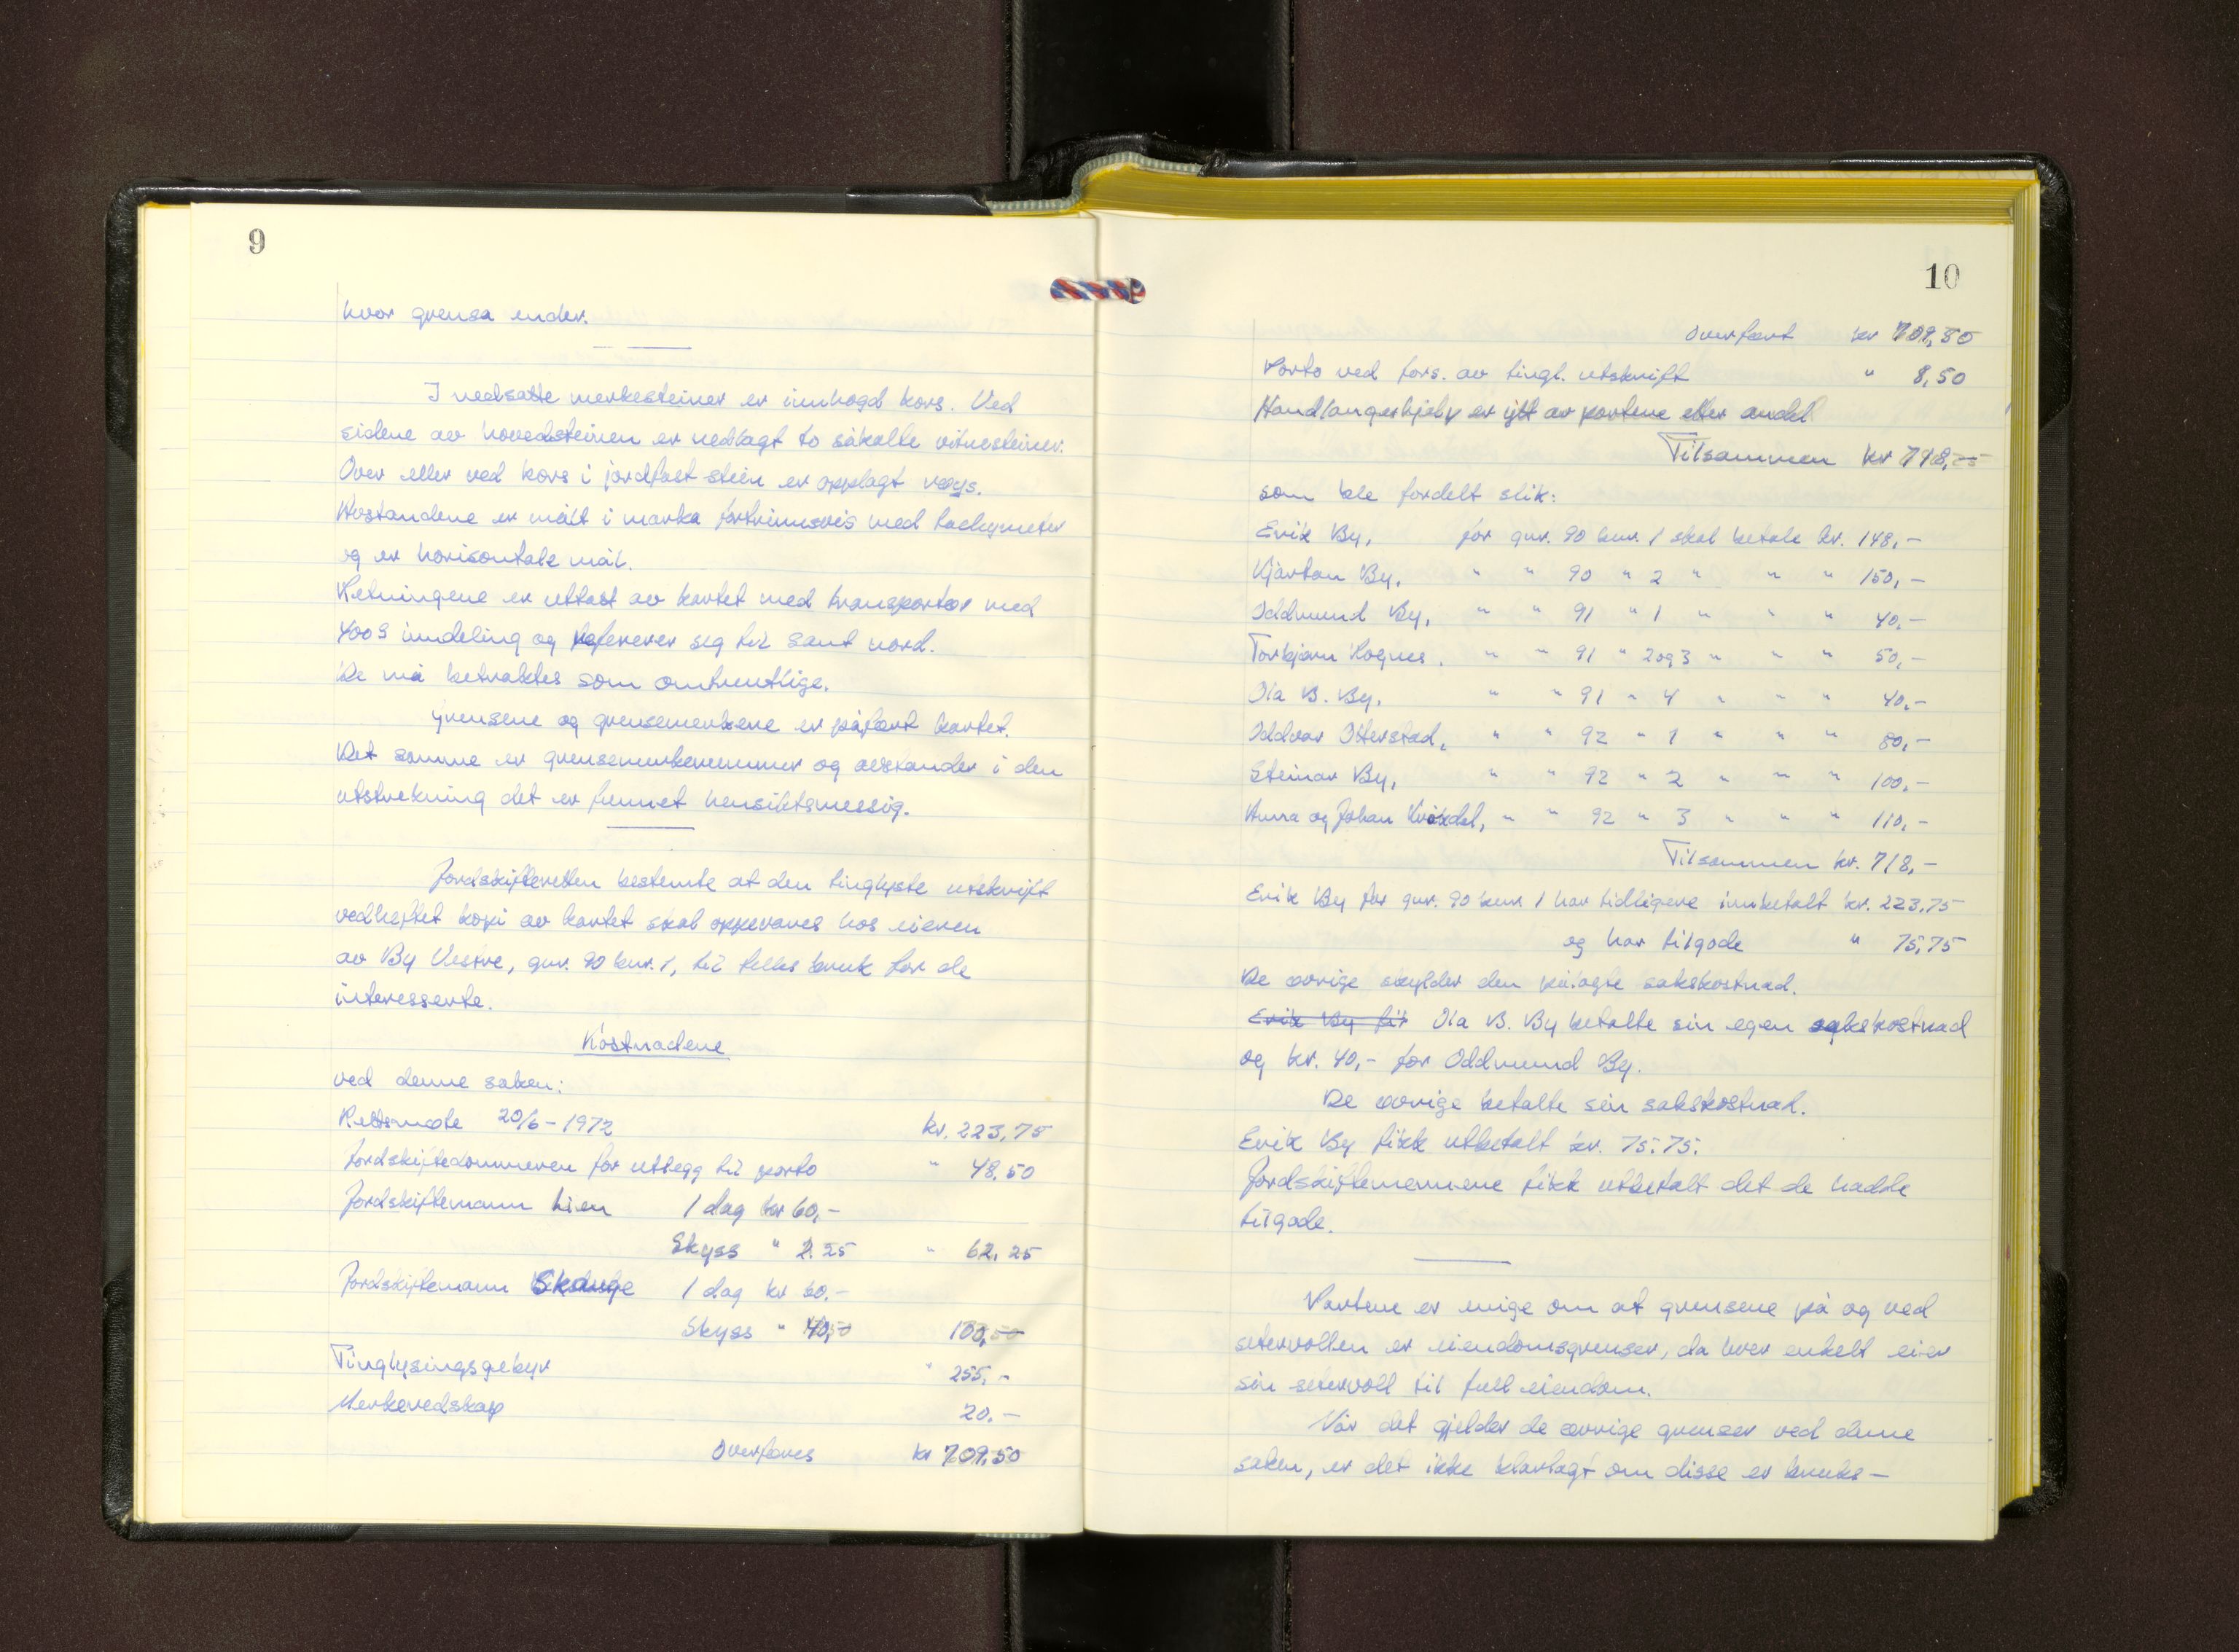 9
hvor grensa ender.
I nedsatte merkesteiner er innhogd kors. Ved
sidene av hovedsteinen er nedlagt to såkalte vitnesteiner.
Over eller ved kors i jordfast stein er opplagt røys.
Avstandene er målt i marka fortrinnsvis med tachymeter
og er horisontale mål.
Retningene er uttatt av kartet med transportør med
400g inndeling og refererer seg til sant nord.
De må betraktes som omtrentlige.
Grensene og grensemerkene er påført kartet.
Det samme er grensemerkenummer og avstander i den
utstrekning det er funnet hensiktsmessig.
Jordskifteretten bestemte at den tinglyste utskrift
vedheftet kopi av kartet skal oppevares hos eieren
av By Vestre, gnr. 90 bnr. 1, til felles bruk for de
interesserte.
Kostnadene
ved denne saken:
Rettsmøte 20/6-1972 kr. 223,75
Jordskiftedommeren for utlegg til porto " 48,50
Jordskiftemann Lien 1 dag kr 60,-
Skyss " 2.25 " 62,25
Jordskiftemann 1 dag kr 60.-
Skyss " 40, 100,
Tinglysingsgebyr " 255,-
Merkeredskap 20.-
Overføres kr 709,50
10
Overført kr 709,50
Porto ved fors. av tingl. utskrift " 8,50
Handlangerhjelp er ytt av partene etter andel
Tilsammen kr 718,
som ble fordelt slik:
Erik By, for gnr. 90 bnr. 1 skal betale kr. 148,-
Kjartan By, " " 90 " 2 " " " 150,-
Oddmund By, " " 91 " 1 " " " 40,-
Torbjørn Hognes. " " 91 " 2og3 " " " 50,-
Ola B. By, " " 91 " 4 " " " 40,-
Oddvar Otterstad, " " 92 " 1 " " " 80,-
Steinar By, " " 92 " 2 " " " 100,-
Anna og Johan Kvixdal, " " 92 " 3 " " " 110,-
Tilsammen kr. 718,-
Erik By for gnr. 90 bnr 1 har tidligere innbetalt kr. 223,75
og har tilgode " 75,75
De øvrige skylder den pålagte sakskostnad.
Erik By fik Ola B. By betalte sin egen sakskostnad
og kr. 40,- for Oddmund By.
De øvrige betalte sin sakskostnad.
Erik By fikk utbetalt kr. 75.75.
Jordskiftemennene fikk utbetalt det de hadde
tilgode.
Partene er enige om at grensene på og ved
setervollen er eiendomsgrenser, da hver enkelt eier
sin setervoll til full eiendom.
Når det gjelder de øvrige grenser ved denne
saken, er det ikke klarlagt om disse er bruks-